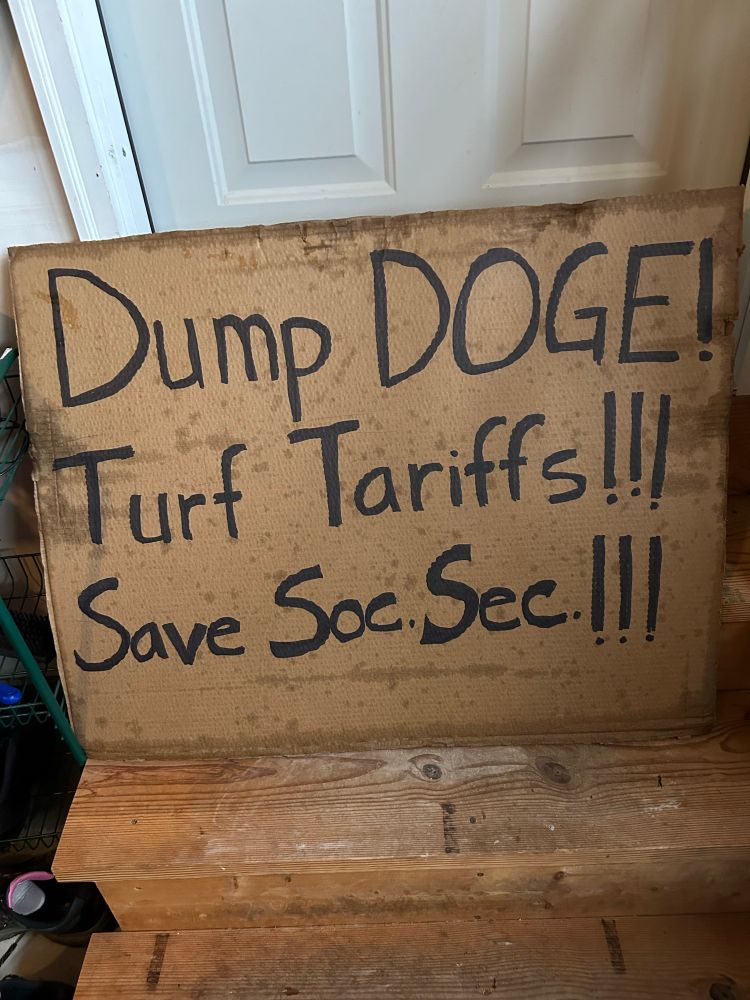 Dump DOGE!
Turf Tariffs!!!
Save Soc. Sec.!!!